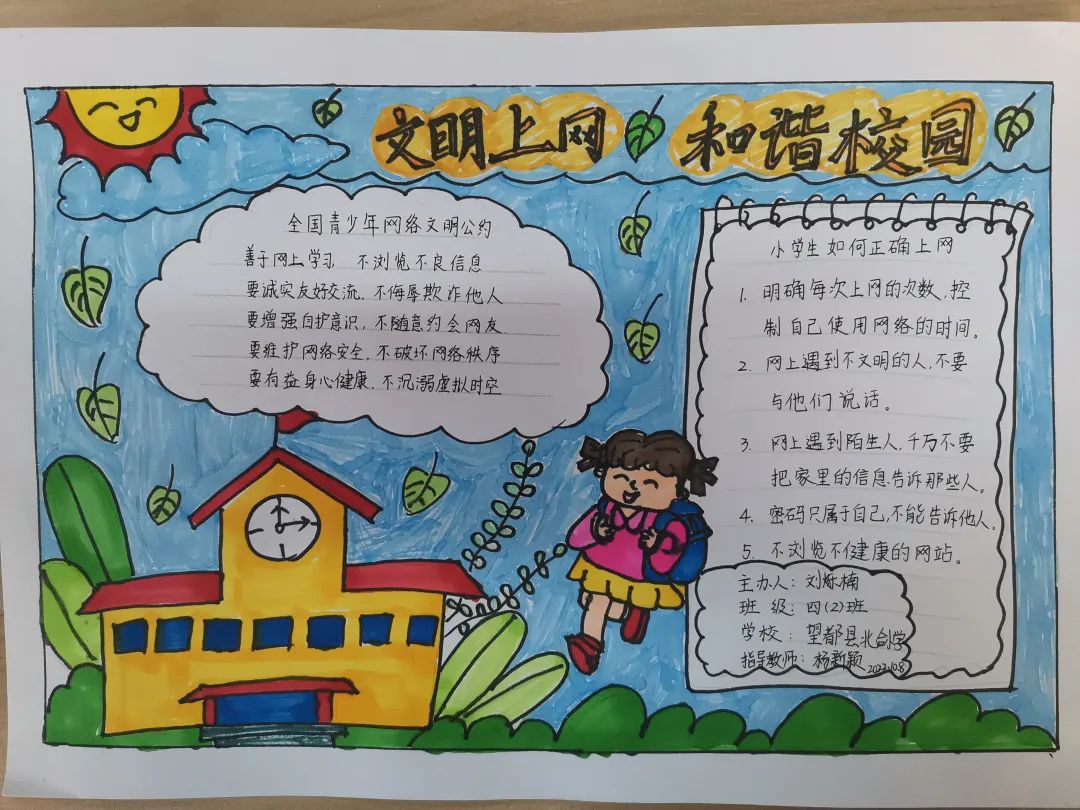 文明上网 和谐校园
全国青少年网络文明公约
善于网上学习 不浏览不良信息
要诚实友好交流,不侮辱欺诈他人
要增强自护意识,不随意约会网友.
要维护网络安全,不破坏网络秩序
要有益身心健康.不沉溺虚拟时空
小学生如何正确上网
1. 明确每次上网的次数,控
制自己使用网络的时间。
2. 网上遇到不文明的人,不要
与他们说话。
3. 网上遇到陌生人,千万不要
把家里的信息告诉那些人。
4. 密码只属于自己,不能告诉他人.
5. 不浏览不健康的网站。
主办人:刘烁楠
班级:四(2)班
学校:望都县北合小学
指导教师:杨新颖